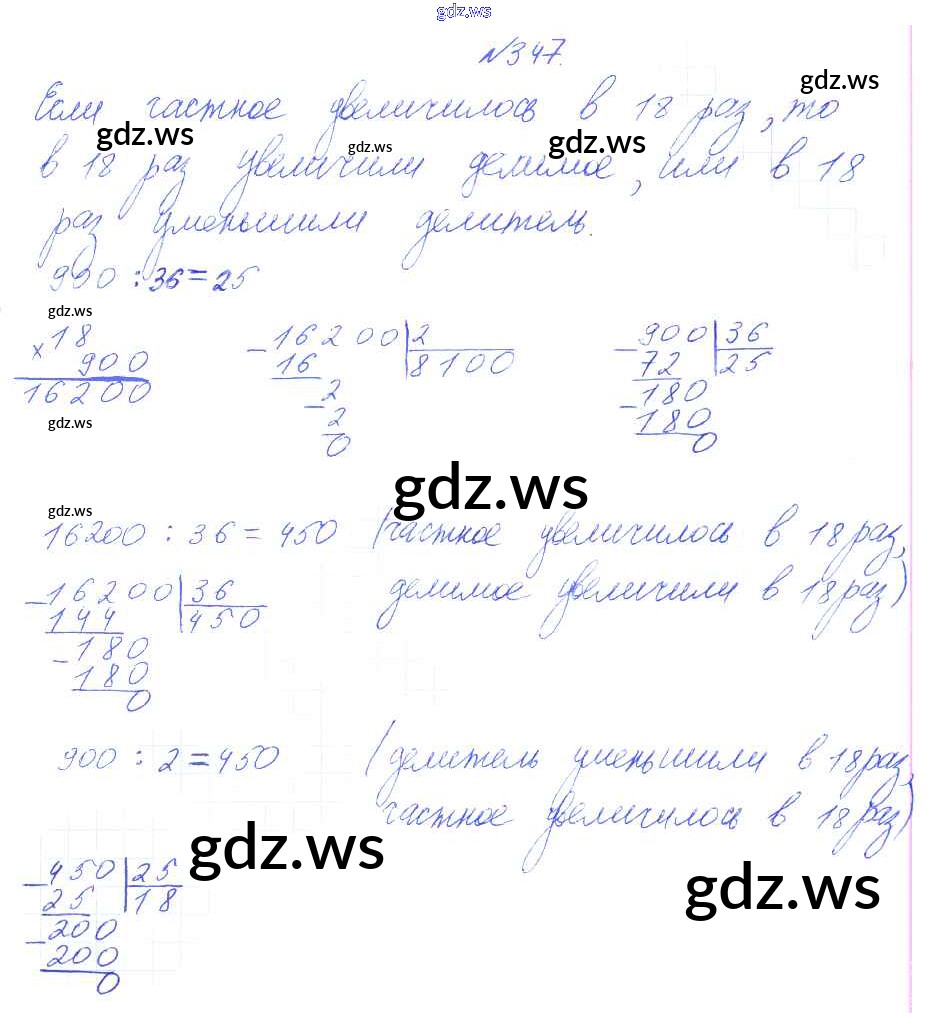 gdz.ws
№347.
gdz.ws
Если частное увеличилось в 18 раз, то
gdz.ws
gdz.ws
gdz.ws
в 18 раз увеличили делимое, или в 18
раз уменьшили делитель.
900 : 36 = 25
gdz.ws
× 18
900
16200
gdz.ws
− 16200 | 2
16 | 8100
− 2
2
0
− 900 | 36
72 | 25
− 180
180
0
gdz.ws
gdz.ws
16200 : 36 = 450 (частное увеличилось в 18 раз,
делимое увеличили в 18 раз)
− 16200 | 36
144 | 450
− 180
180
0
900 : 2 = 450 (делитель уменьшили в 18 раз,
частное увеличилось в 18 раз)
gdz.ws
gdz.ws
− 450 | 25
25 | 18
− 200
200
0